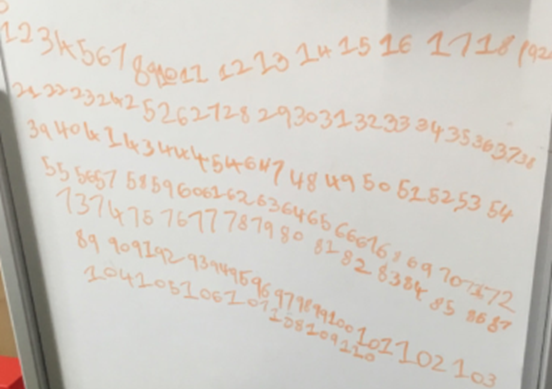 1 2 3 4 5 6 7 8 9 10 11 12 13 14 15 16 17 18 19 20
21 22 23 24 25 26 27 28 29 30 31 32 33 34 35 36 37 38
39 40 41 43 44 45 46 47 48 49 50 51 52 53 54
55 56 57 58 59 60 61 62 63 64 65 66 67 68 69 70 71 72
73 74 75 76 77 78 79 80 81 82 83 84 85 86 87
89 90 91 92 93 94 95 96 97 98 99 100 101 102 103
104 105 106 107 108 109 110